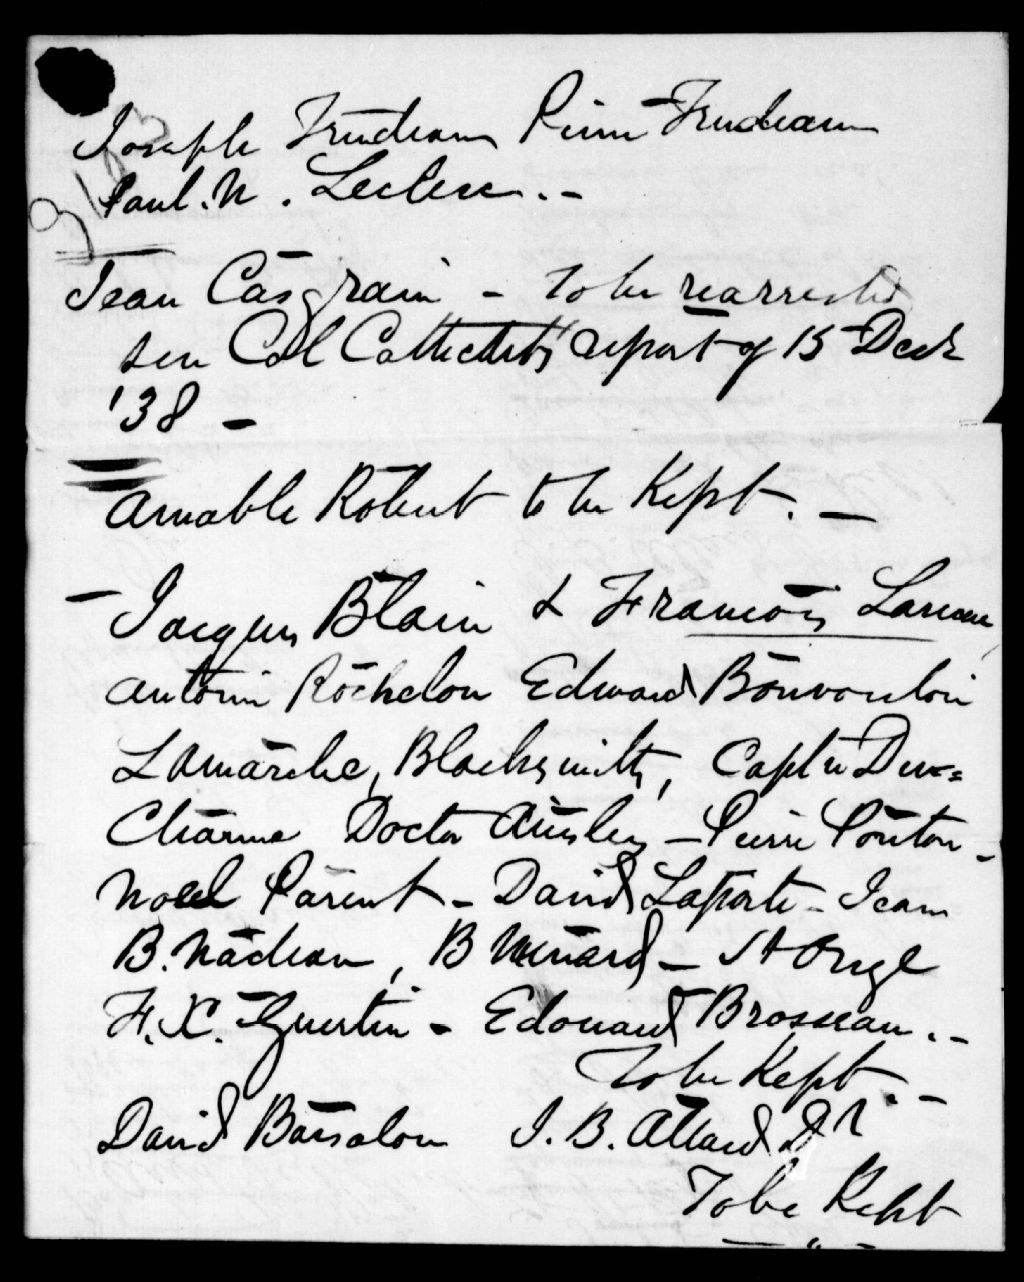 Joseph Trudeau Pierre Trudeau
Paul. N. Leclere. -
Jean Casgrain - to be rearrested
see Col Cathcart's report of 15 Decr
'38 -
Amable Robert to be Kept. -
- Jacques Blain & Francois Lareau
Antoine Rochelou Edward Bonvouloir
Lamarche, Blacksmith, Captn Du=
Charme Doctor Ainsley - Pierre Pouton -
Noel Parent - David Laporte - Jean
B. Nadeau, B Menard - St Onge
F. X. Guertin - Edouard Brosseau. -
To be Kept. -
David Barsalou J. B. Allard Dr
To be Kept